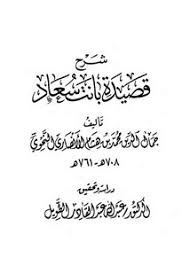 شرح
قصيدة بانت سعاد
تأليف
جمال الدين محمد بن هشام الأنصاري النحوي
٧٠٨ هـ - ٧٦١ هـ
دراسة وتحقيق
الدكتور عبد الله عبد القادر الطويل